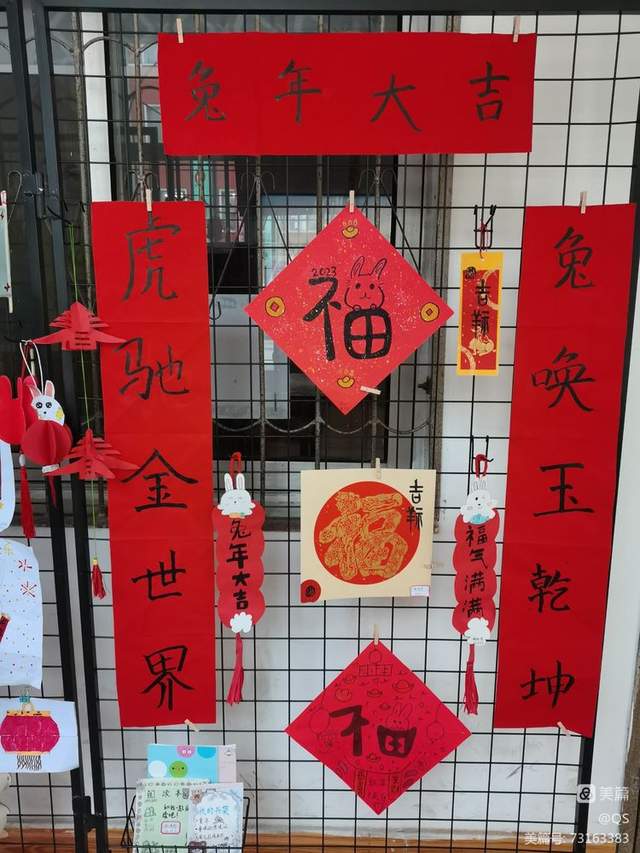 兔年大吉
虎驰金世界
兔唤玉乾坤
2023
福
吉翔
福
吉翔
兔年大吉
福气满满
福
美篇
@QS
美篇号: 73163383